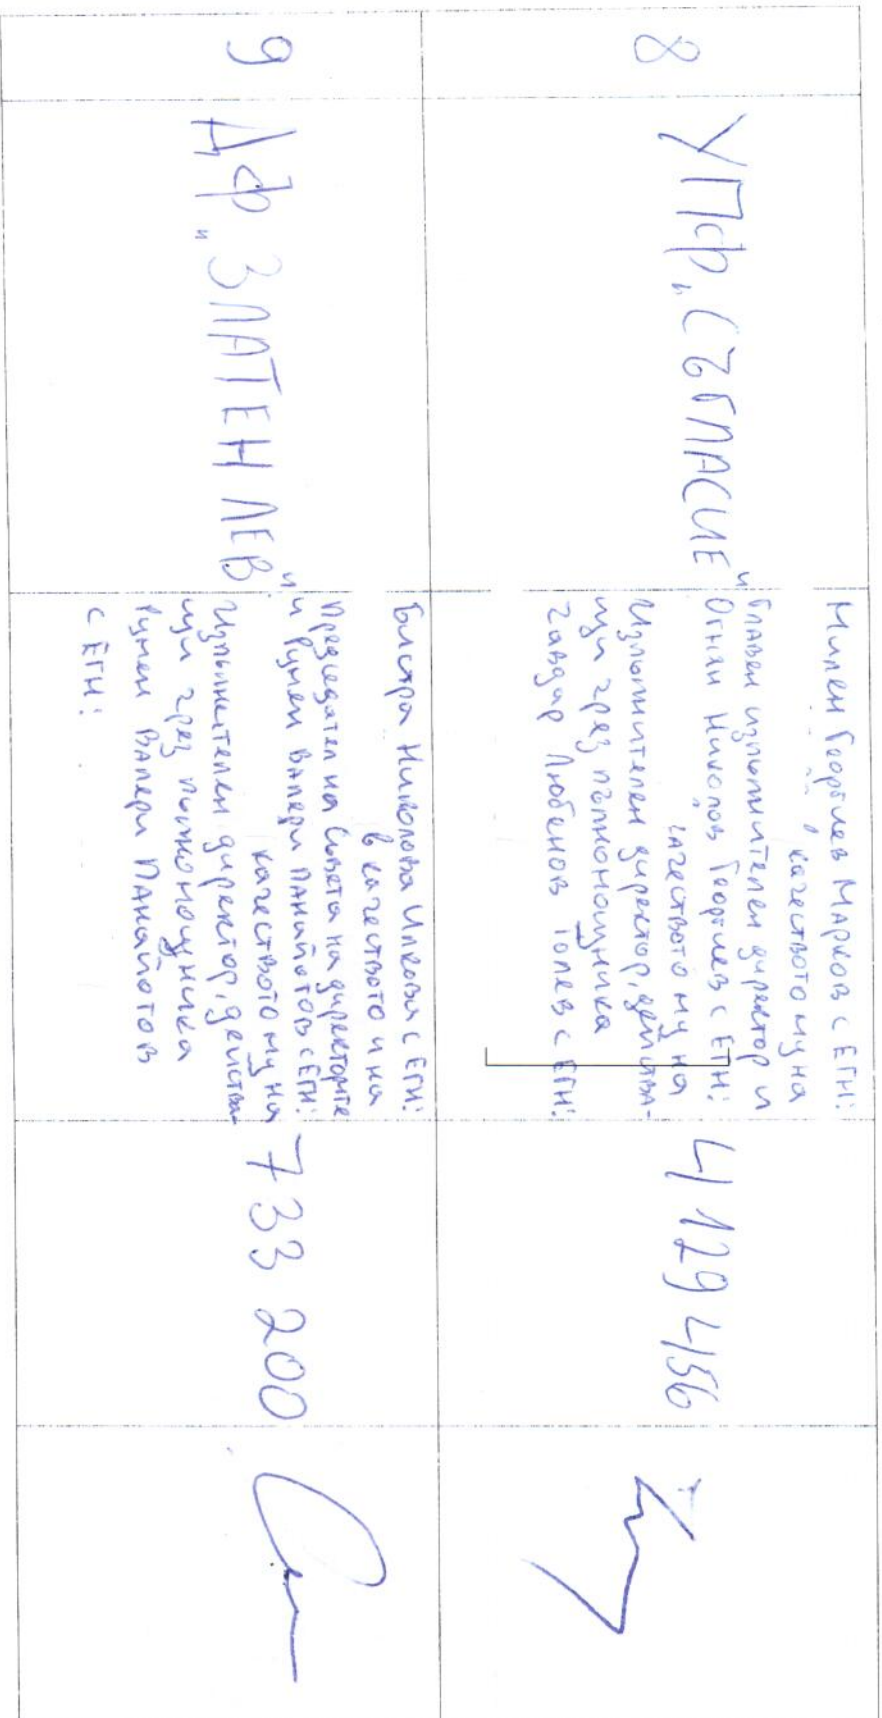 8
УПФ „СЪГЛАСИЕ"
Милен Георгиев Марков с ЕГН:
качеството му на
Главен изпълнителен директор и
Огнян Николов Георгиев с ЕГН:
качеството му на
Изпълнителен директор, действа-
щи чрез пълномощника
Чавдар Любенов Гопев с ЕГН:
4 129 456
9
ДФ „ЗЛАТЕН ЛЕВ"
Бистра Николова Илкова с ЕГН:
в качеството и на
Председател на Съвета на директорите
и Румен Валери Панайотов с ЕГН:
качеството му на
Изпълнителен директор, действа-
щи чрез пълномощника
Румен Валери Панайотов
с ЕГН:
733 200